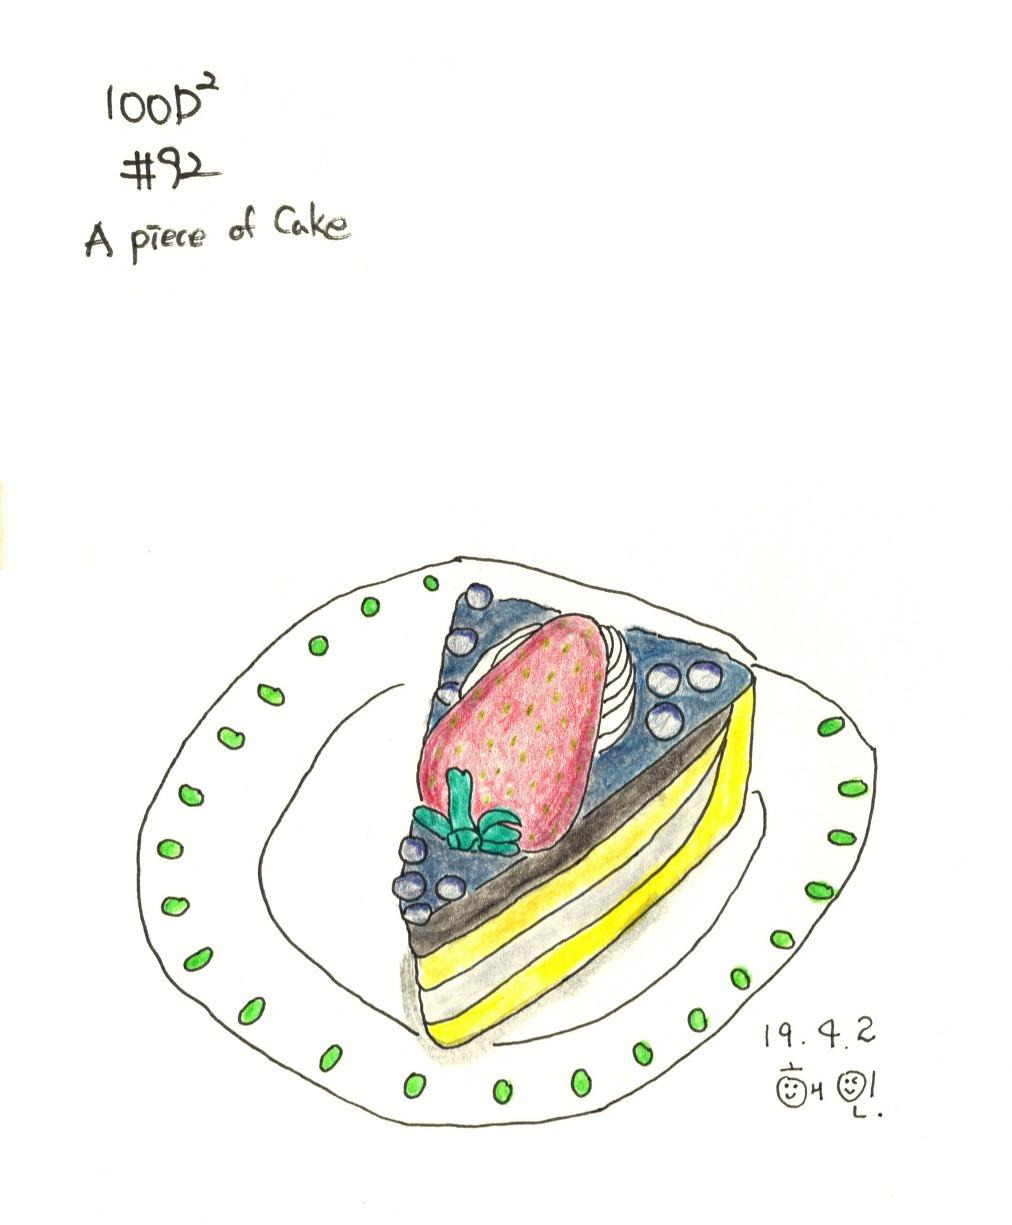 100D²
#92
A piece of Cake
19.4.2
해인.